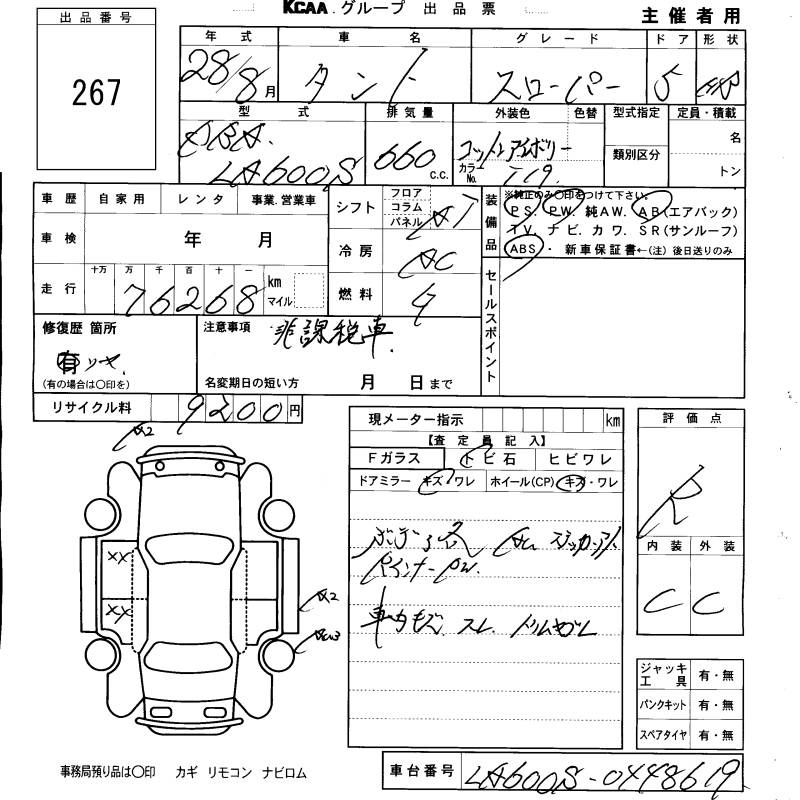 KCAA グループ 出品票
主催者用
出品番号
267
年式 車名 グレード ドア 形状
28/8月 タント スローパー 5 HB
型式 排気量 外装色 色替 型式指定 定員・積載
DBA.
LA600S
660 C.C.
コットンアイボリー
カラーNo. T19
類別区分
名
トン
車歴 自家用 レンタ 事業.営業車
車検 年 月
走行 十万 万 千 百 十 一
76268 km マイル
シフト フロア コラム パネル AT
冷房 AC
燃料 G
装備品
※純正のみ〇印をつけて下さい。
PS. PW. 純AW. AB(エアバック)
TV. ナビ. カワ. SR(サンルーフ)
ABS・新車保証書←(注)後日送りのみ
セールスポイント
修復歴 箇所
有
(有の場合は〇印を)
注意事項 非課税車
名変期日の短い方 月 日まで
リサイクル料 9200円
現メーター指示 km
【査定員記入】
Fガラス トビ石 ヒビワレ
ドアミラー キズ・ワレ ホイール(CP) キズ・ワレ
評価点
R
内装 外装
C C
A2
XX
XX
A2
ジャッキ工具 有・無
パンクキット 有・無
スペアタイヤ 有・無
事務局預り品は〇印 カギ リモコン ナビロム
車台番号 LA600S-0448619